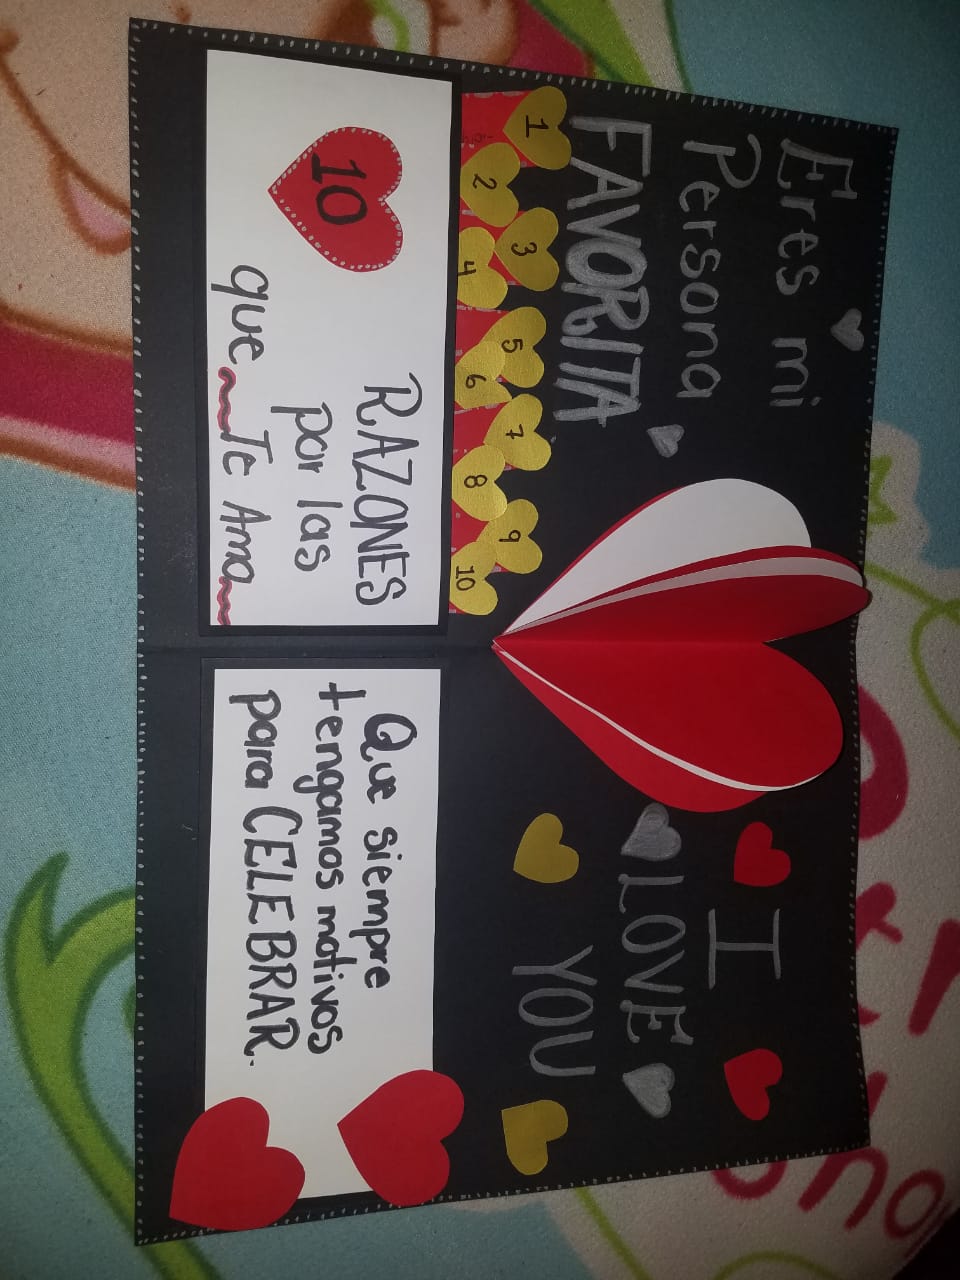 Eres mi
Persona
FAVORITA
1
2
3
4
5
6
7
8
9
10
10
RAZONES
por las
que Te Amo
I
LOVE
YOU
Que siempre
tengamos motivos
para CELEBRAR.